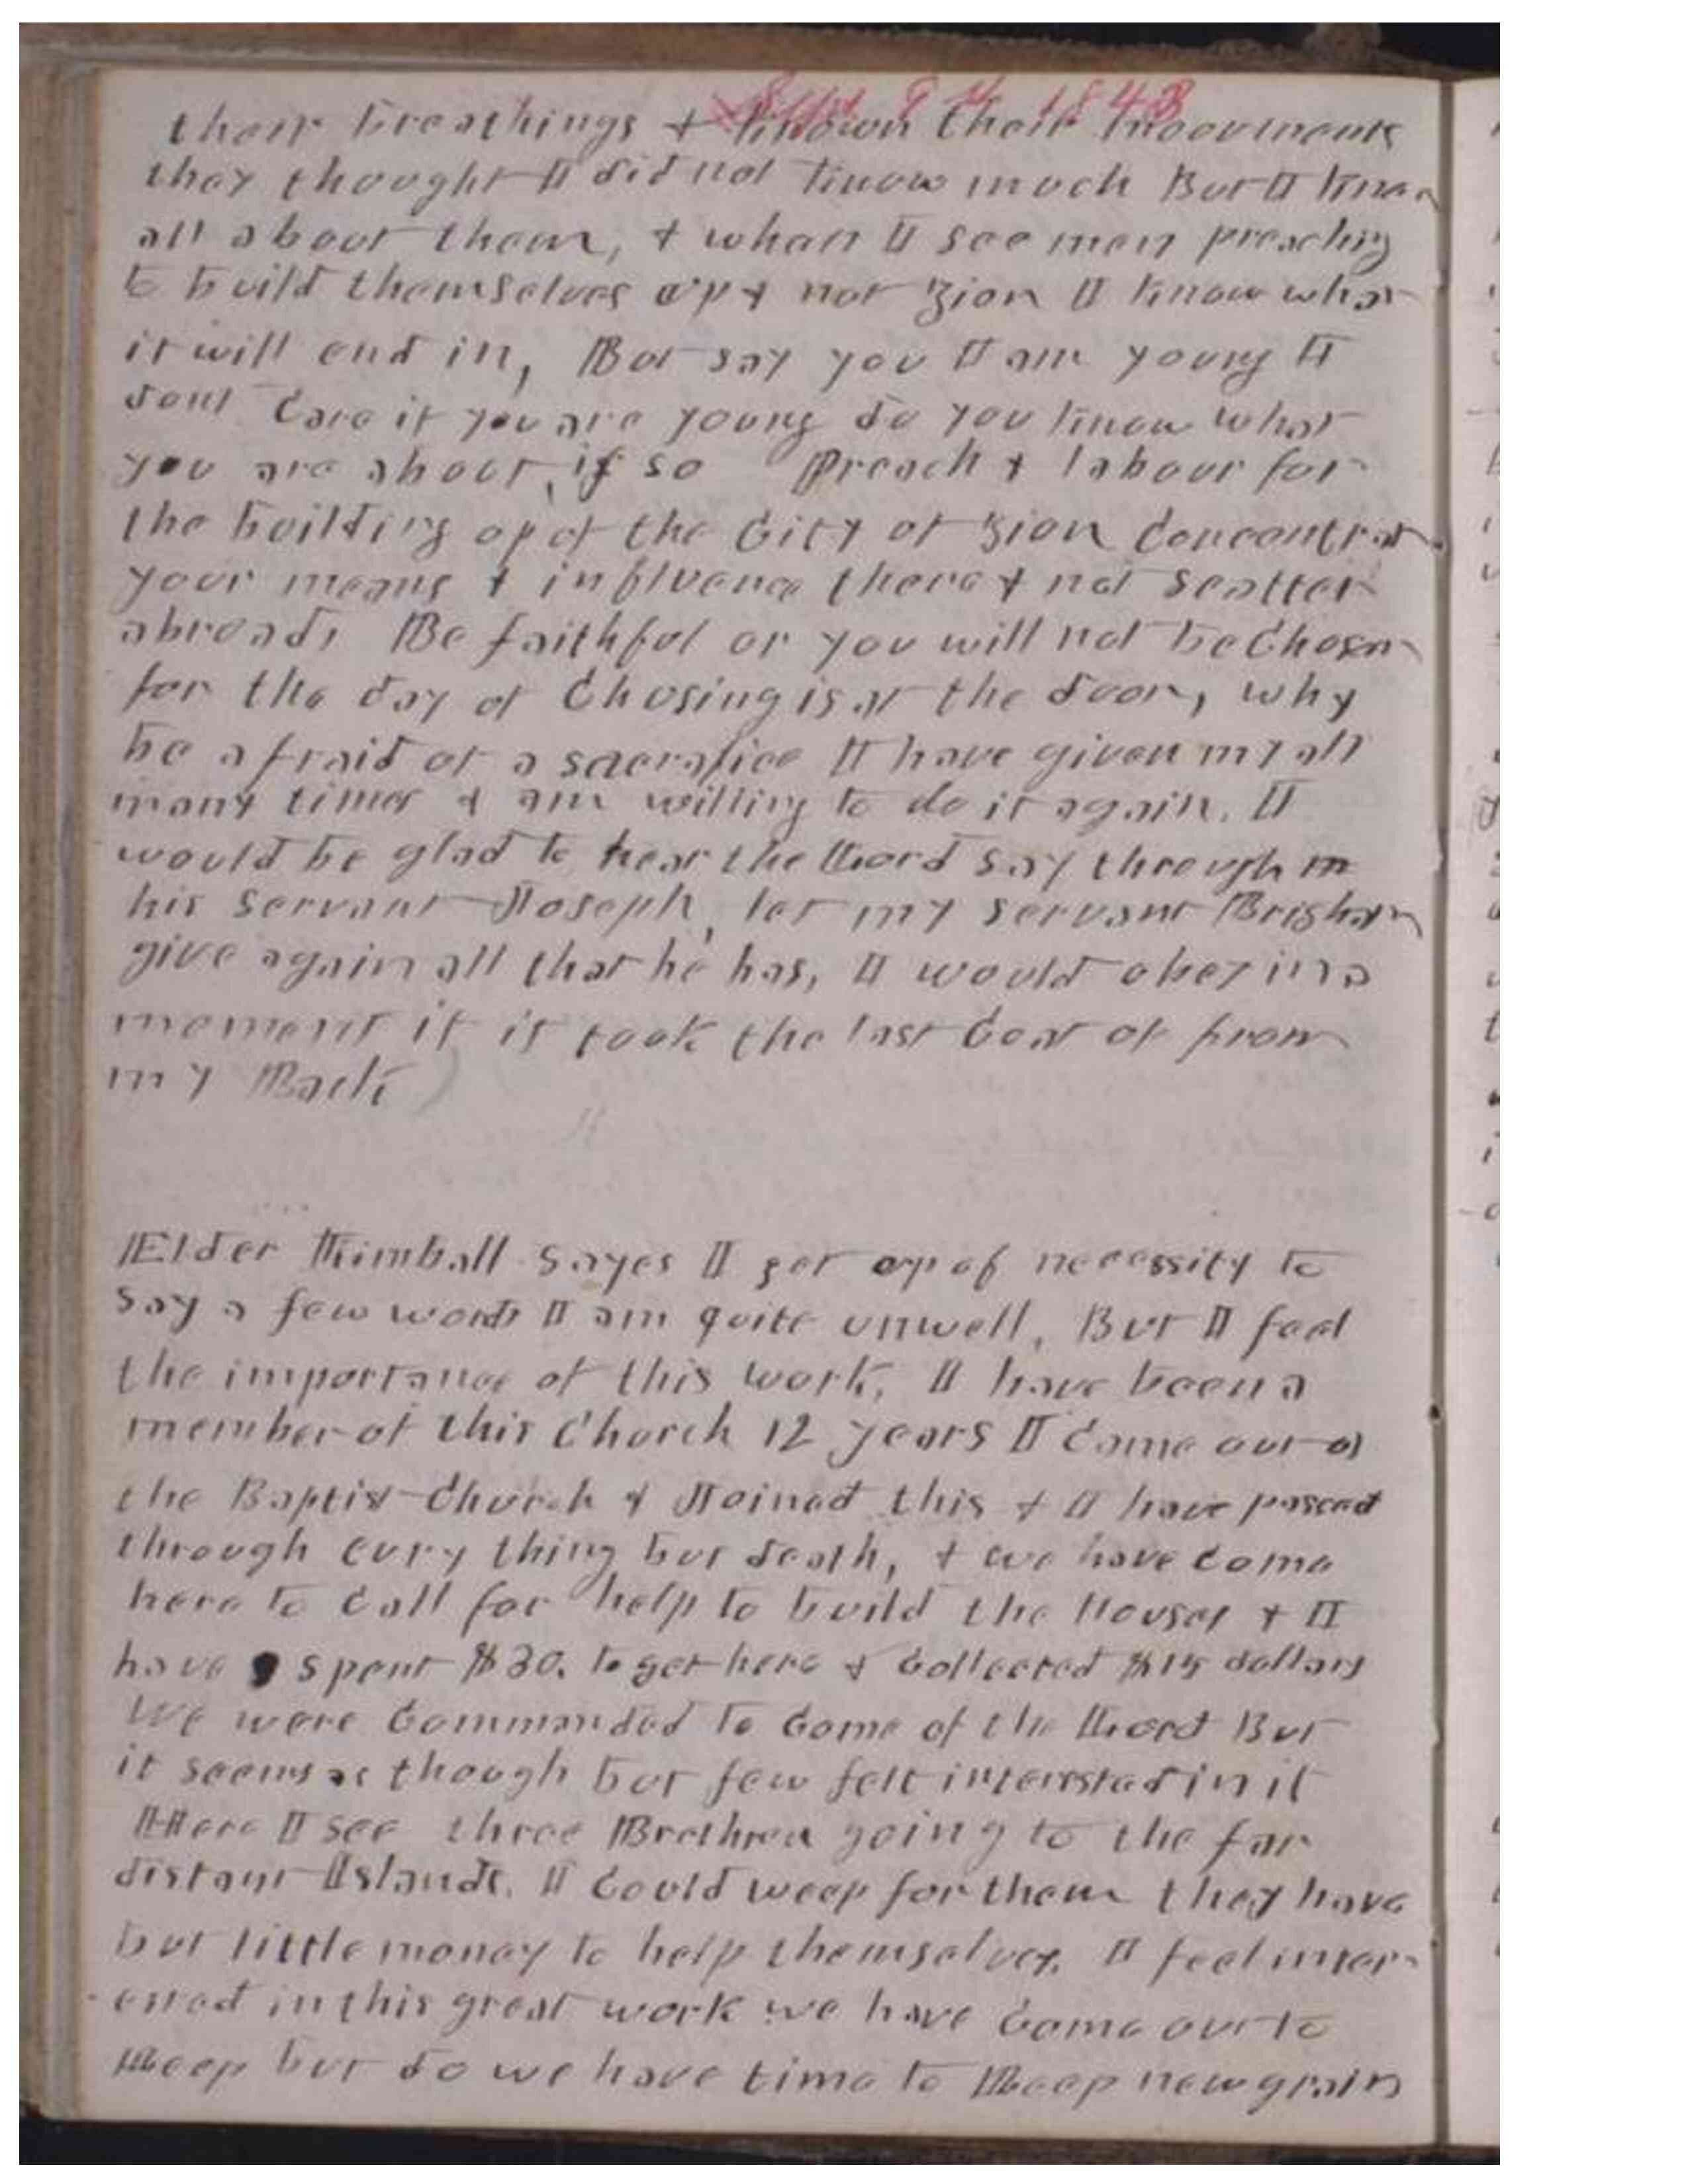 Sept 9th 1843
their breathings & known their moovments
they thought I did not know much But I know
all about them, & when I see men preaching
to build themselves up & not Zion I know what
it will end in, But say you I am young I
dont Care if you are young do you know what
you are about, if so Preach & labour for
the building up of the City of Zion Concentrate
your means & influence there & not scatter
abroad, Be faithful or you will not be Chosen
for the day of Chosing is at the door, why
be afraid of a sacrafice I have given my all
many times & am willing to do it again. I
would be glad to hear the Lord say through m
his servant Joseph, let my servant Brigham
give again all that he has, I would obey in a
moment if it took the last Coat of from
my Back
Elder Kimball sayes I get up of necessity to
say a few words I am quite unwell, But I feel
the importance of this work, I have been a
member of this Church 12 years I Came out of
the Baptist Church & Joined this & I have passed
through evry thing but death, & we have Come
here to Call for help to build the Houses & I
have spent $30. to get here & Collected $15 dollars
We were Commanded to Come of the Lord But
it seems as though but few felt interested in it
Here I see three Brethren going to the far
distant Islands. I Could weep for them they have
but little money to help themselves. I feel inter-
ested in this great work we have Come out to
Reap but do we have time to Reap new grain